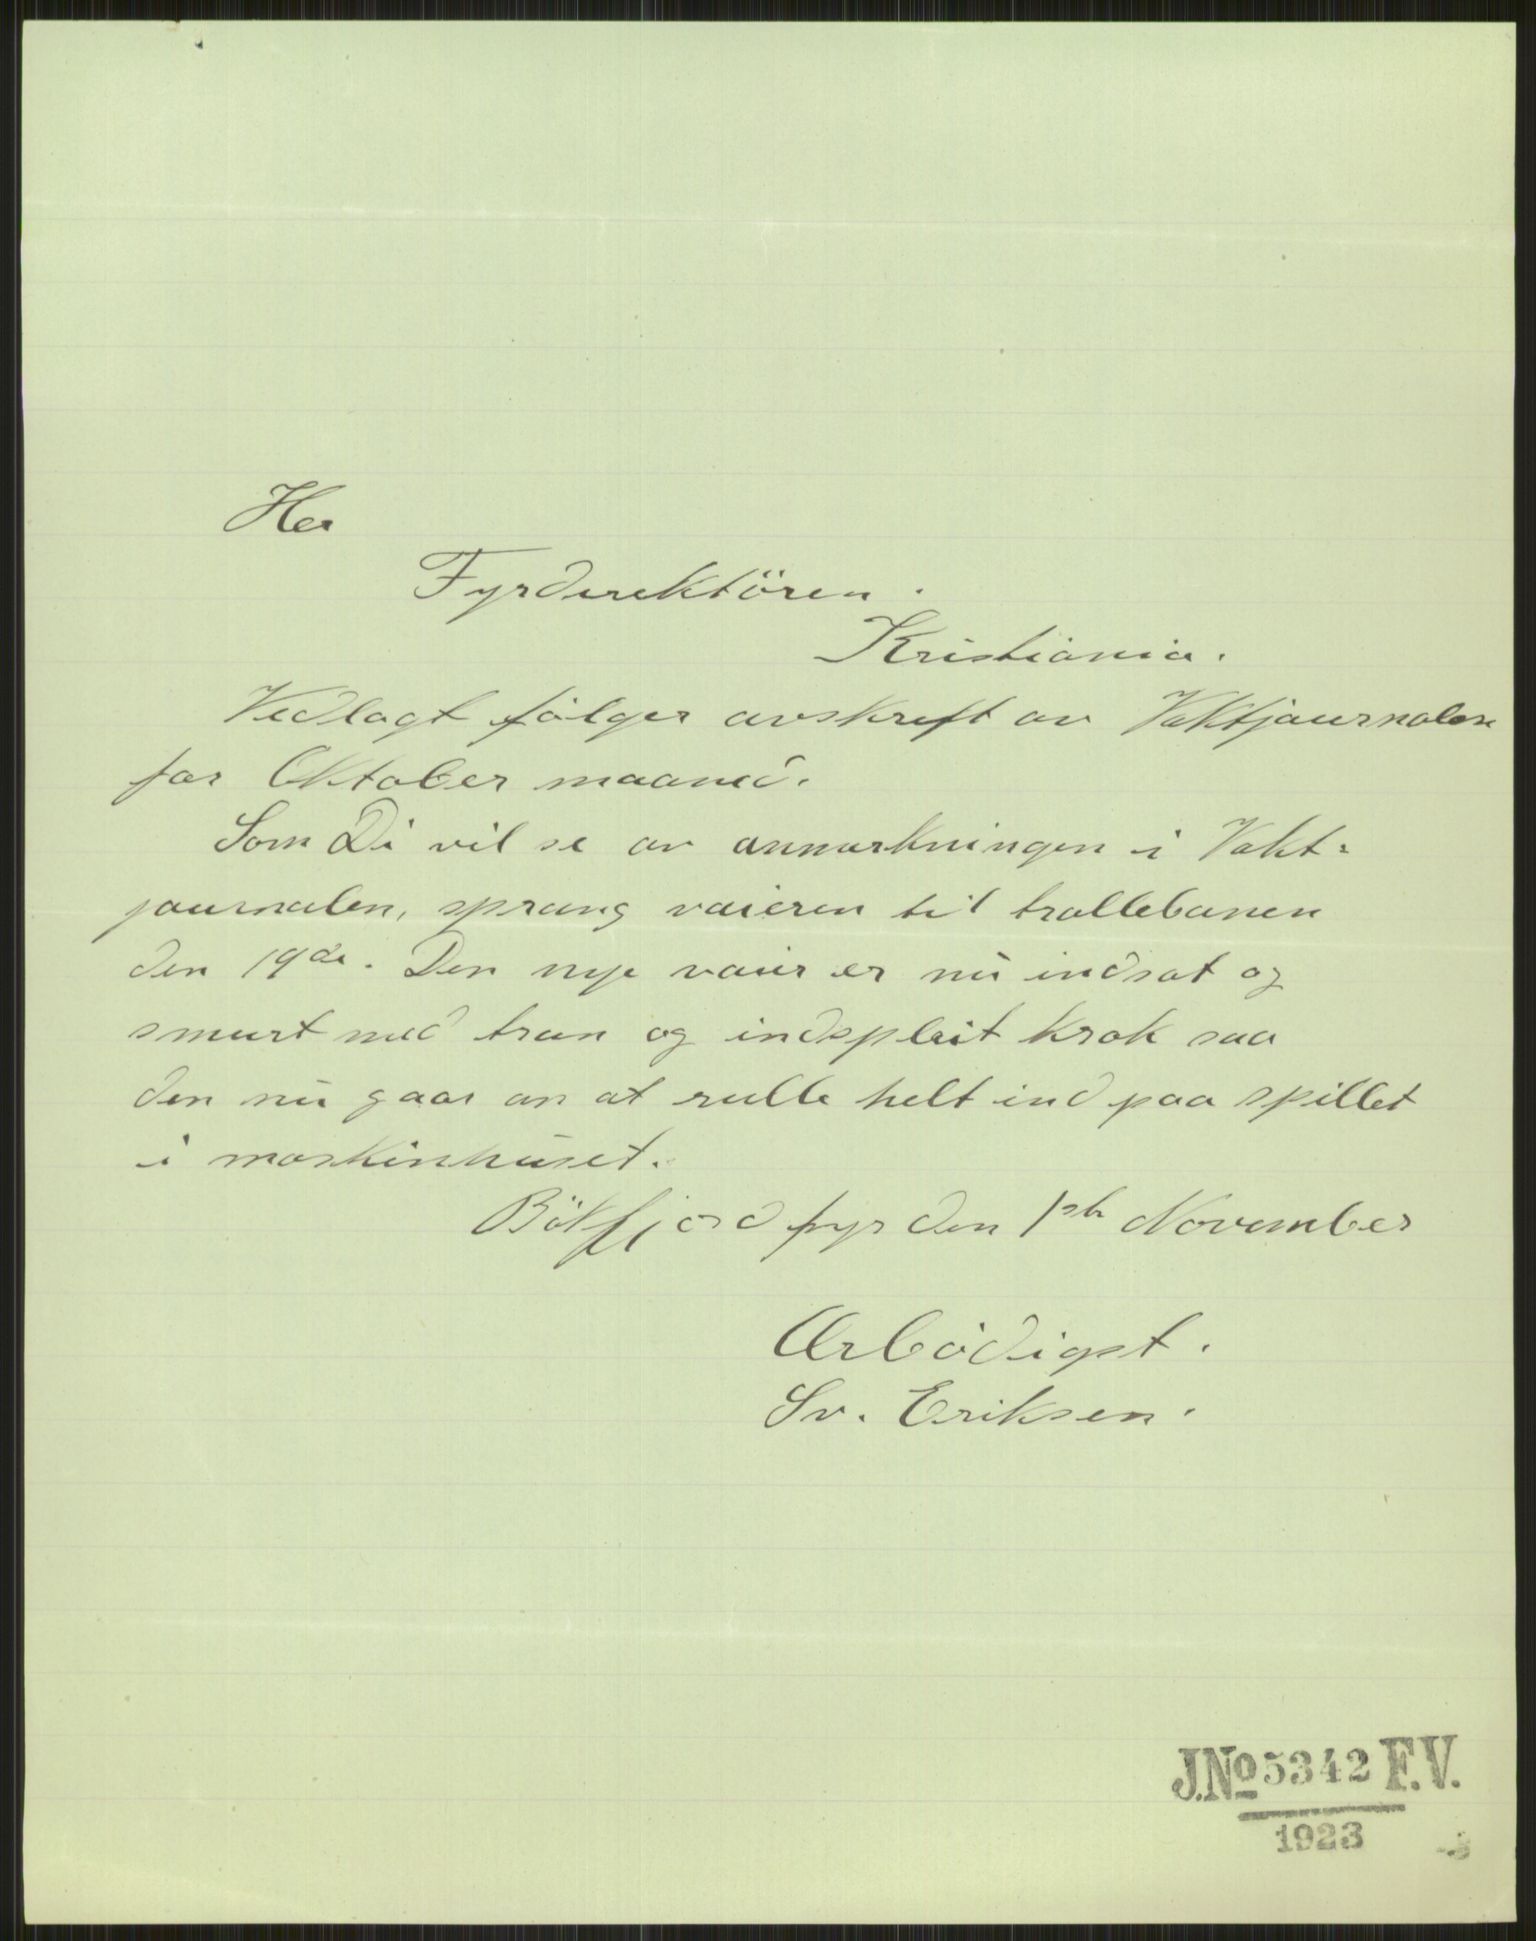 Her
Fyrdirektören.
Kristiania.
Vedlagt fölger avskrift av Vaktjournalen
for Oktober maaned.
Som Di vil se av anmerkningen i Vakt-
journalen, sprang vaieren til trallebanen
den 19de. Den nye vaier er nu indsat og
smurt med tran og indspleist krok saa
den nu gaar an at rulle helt ind paa spillet
i maskinhuset.
Bökfjord fyr den 1ste November
Ærbödigst.
Sv. Eriksen.
J.No 5342 F.V.
1923